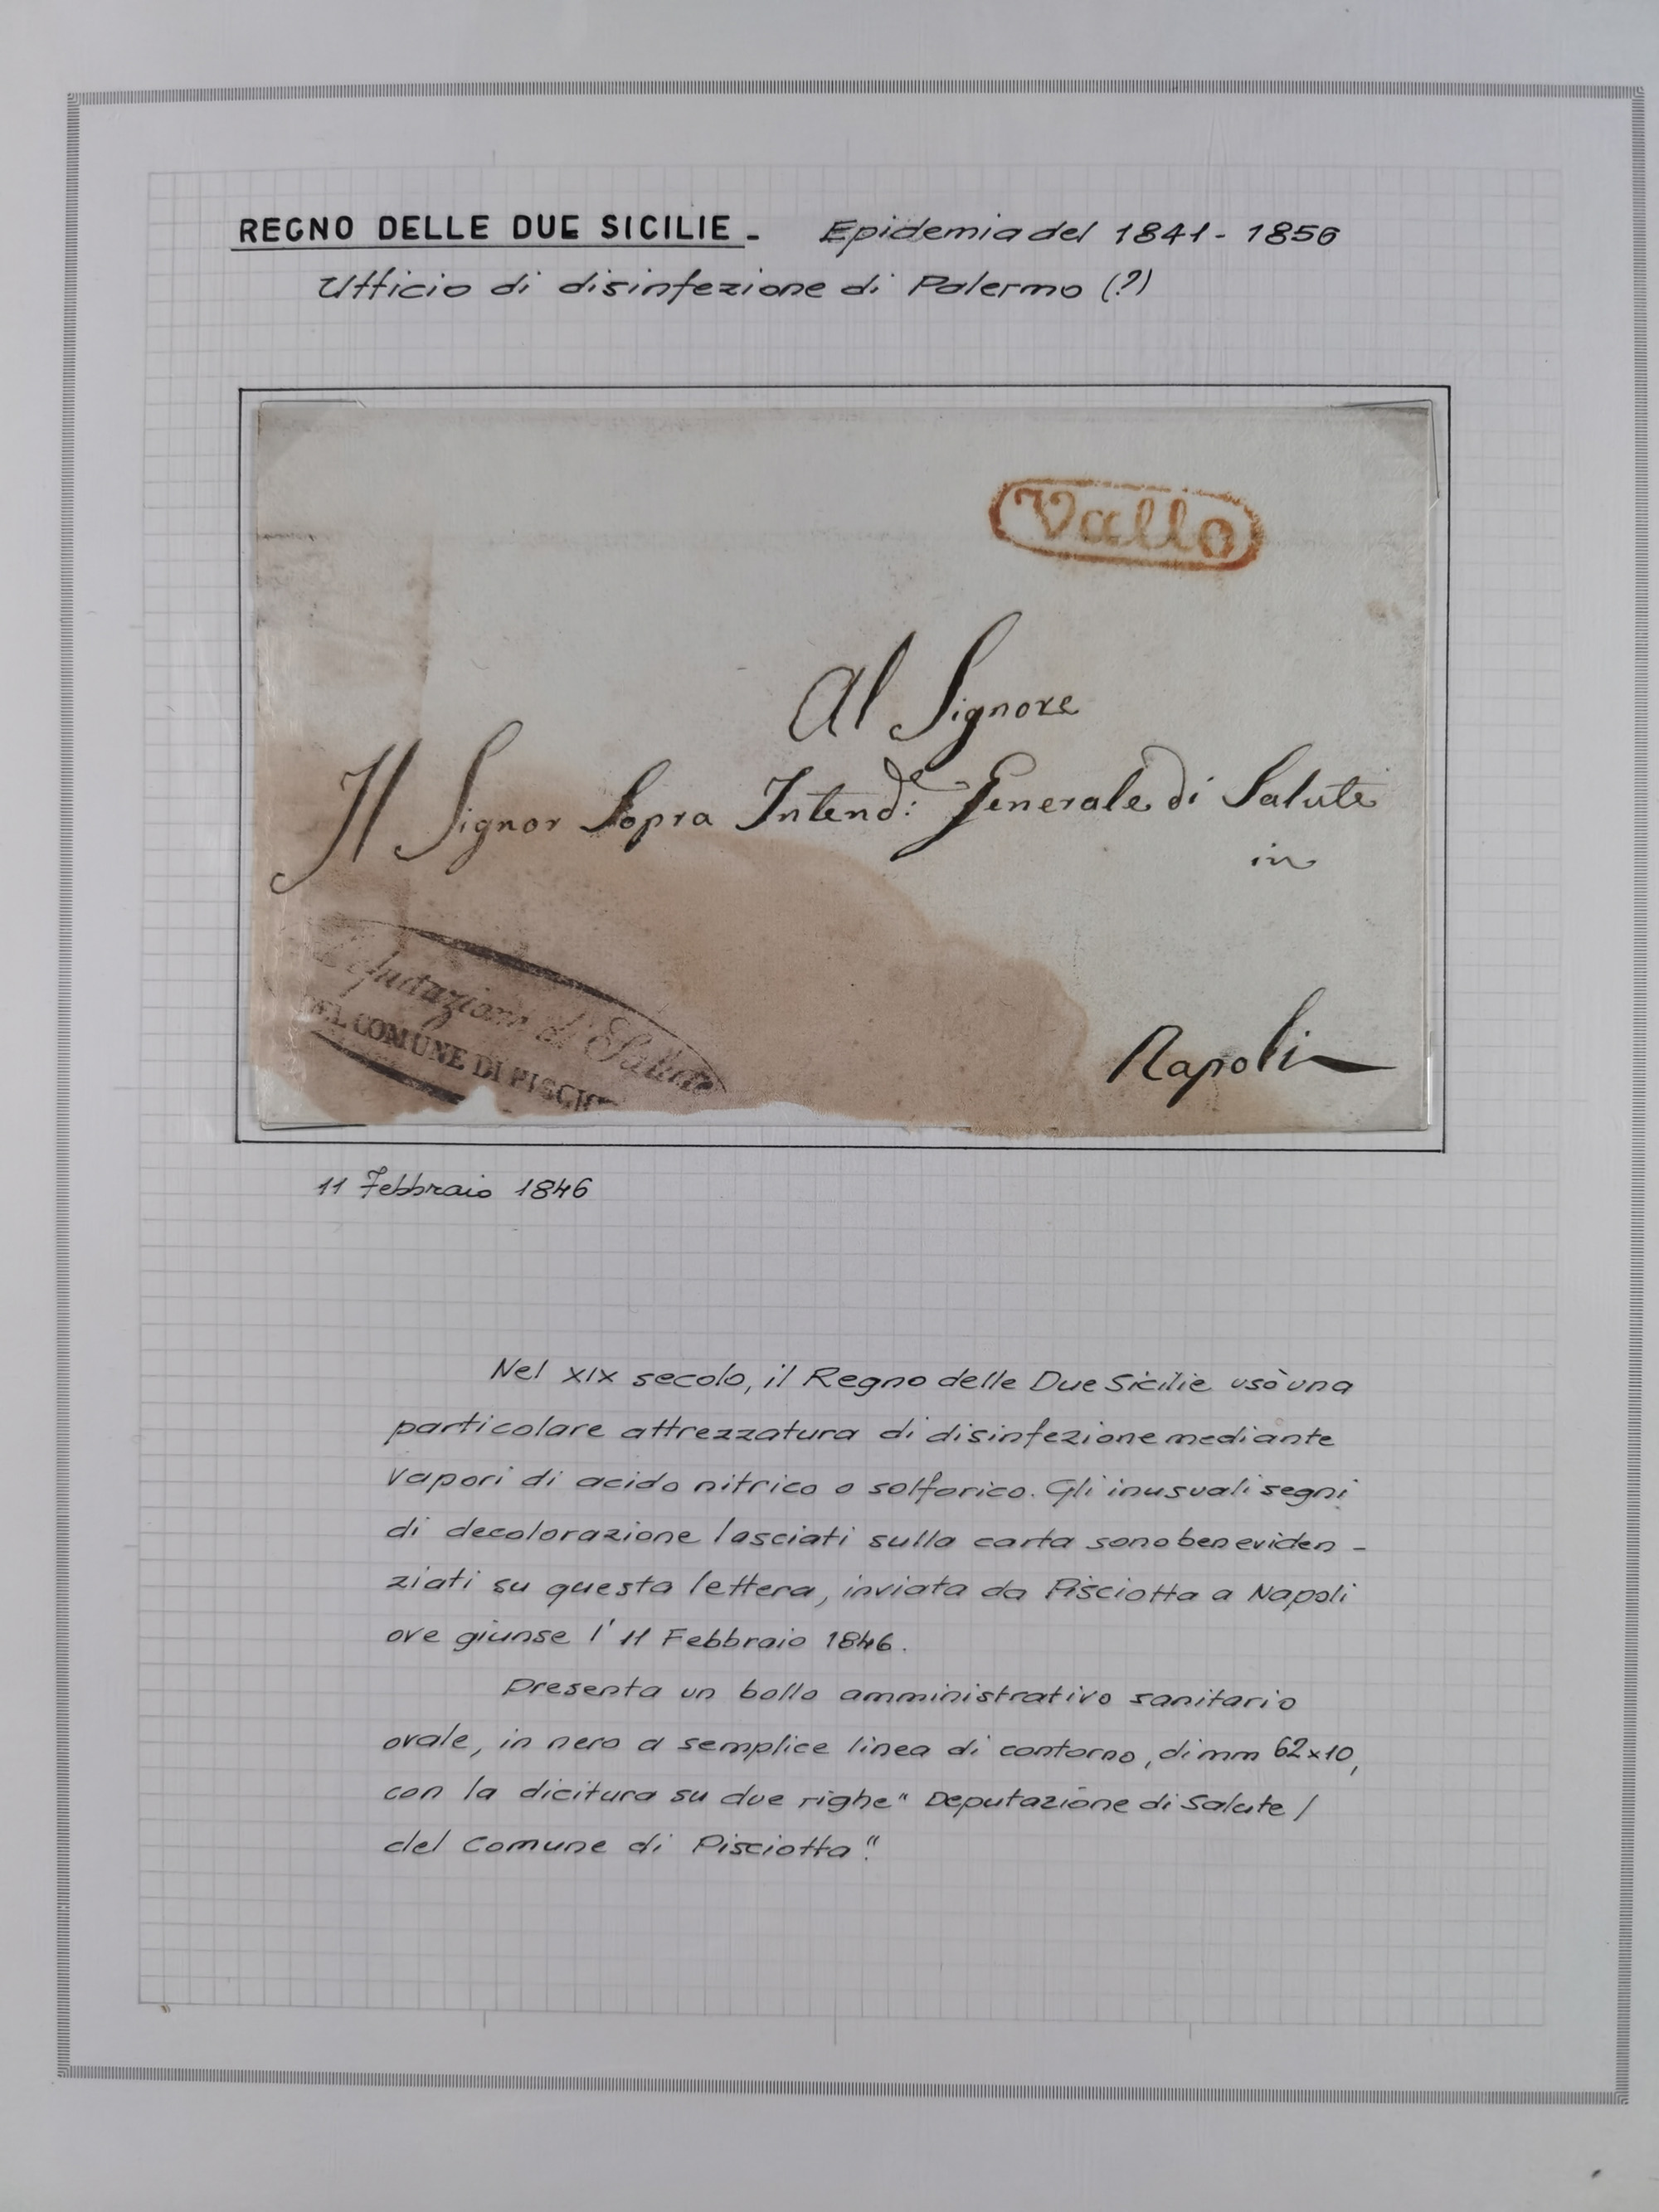 REGNO DELLE DUE SICILIE - Epidemia del 1841 - 1856
Ufficio di disinfezione di Palermo (?)
Vallo
Al Signore
Il Signor Sopra Intend:de Generale di Salute
in
Napoli
Deputazione di Salute
DEL COMUNE DI PISCIOT
11 Febbraio 1846
Nel XIX secolo, il Regno delle Due Sicilie usò una
particolare attrezzatura di disinfezione mediante
vapori di acido nitrico o solforico. Gli inusuali segni
di decolorazione lasciati sulla carta sono ben eviden -
ziati su questa lettera, inviata da Pisciotta a Napoli
ove giunse l' 11 Febbraio 1846.
Presenta un bollo amministrativo sanitario
ovale, in nero a semplice linea di contorno, di mm 62x10,
con la dicitura su due righe " Deputazione di Salute /
del Comune di Pisciotta".